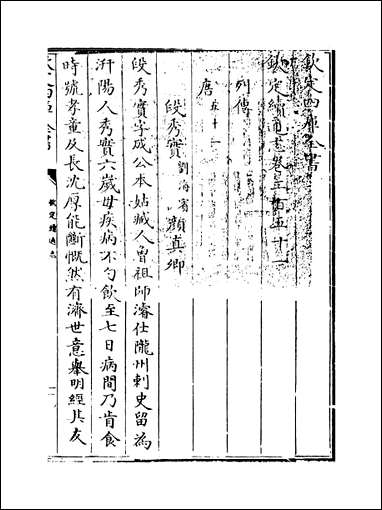 欽定四庫全書
欽定續通志卷二百五十二
列傳
唐五十二
段秀實 劉海賓 顏真卿
段秀實字成公本姑臧人曾祖師濬仕隴州刺史留為
汧陽人秀實六歲母疾病不勺飲至七日病間乃肯食
時號孝童及長沈厚能斷慨然有濟世意舉明經其友
欽定續通志